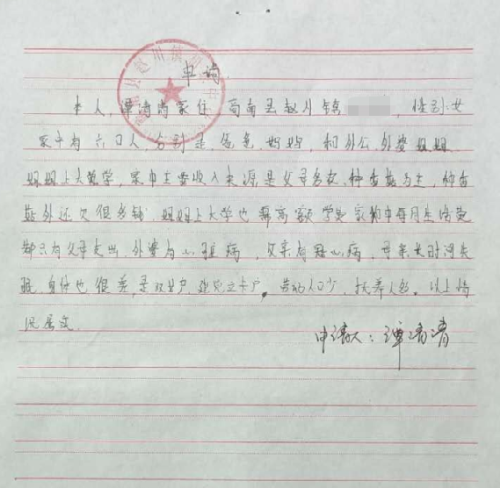 申请
本人,谭清清家住 商南县赵川镇 性别女
家中有六口人,分别是,爸爸,妈妈,和外公,外婆 姐姐
姐姐上大学,家中主要收入来源是父母务农,种香菇为生,种香
菇外还欠很多钱 姐姐上大学也 需高额 学费 我初中每月生活费
都只有父母支出 外婆有心脏病,父亲有冠心病,母亲长时间失
眠,身体也很差,是双女户 建档立卡户。劳动人口少,抚养人多。以上情
况属实
申请人:谭清清